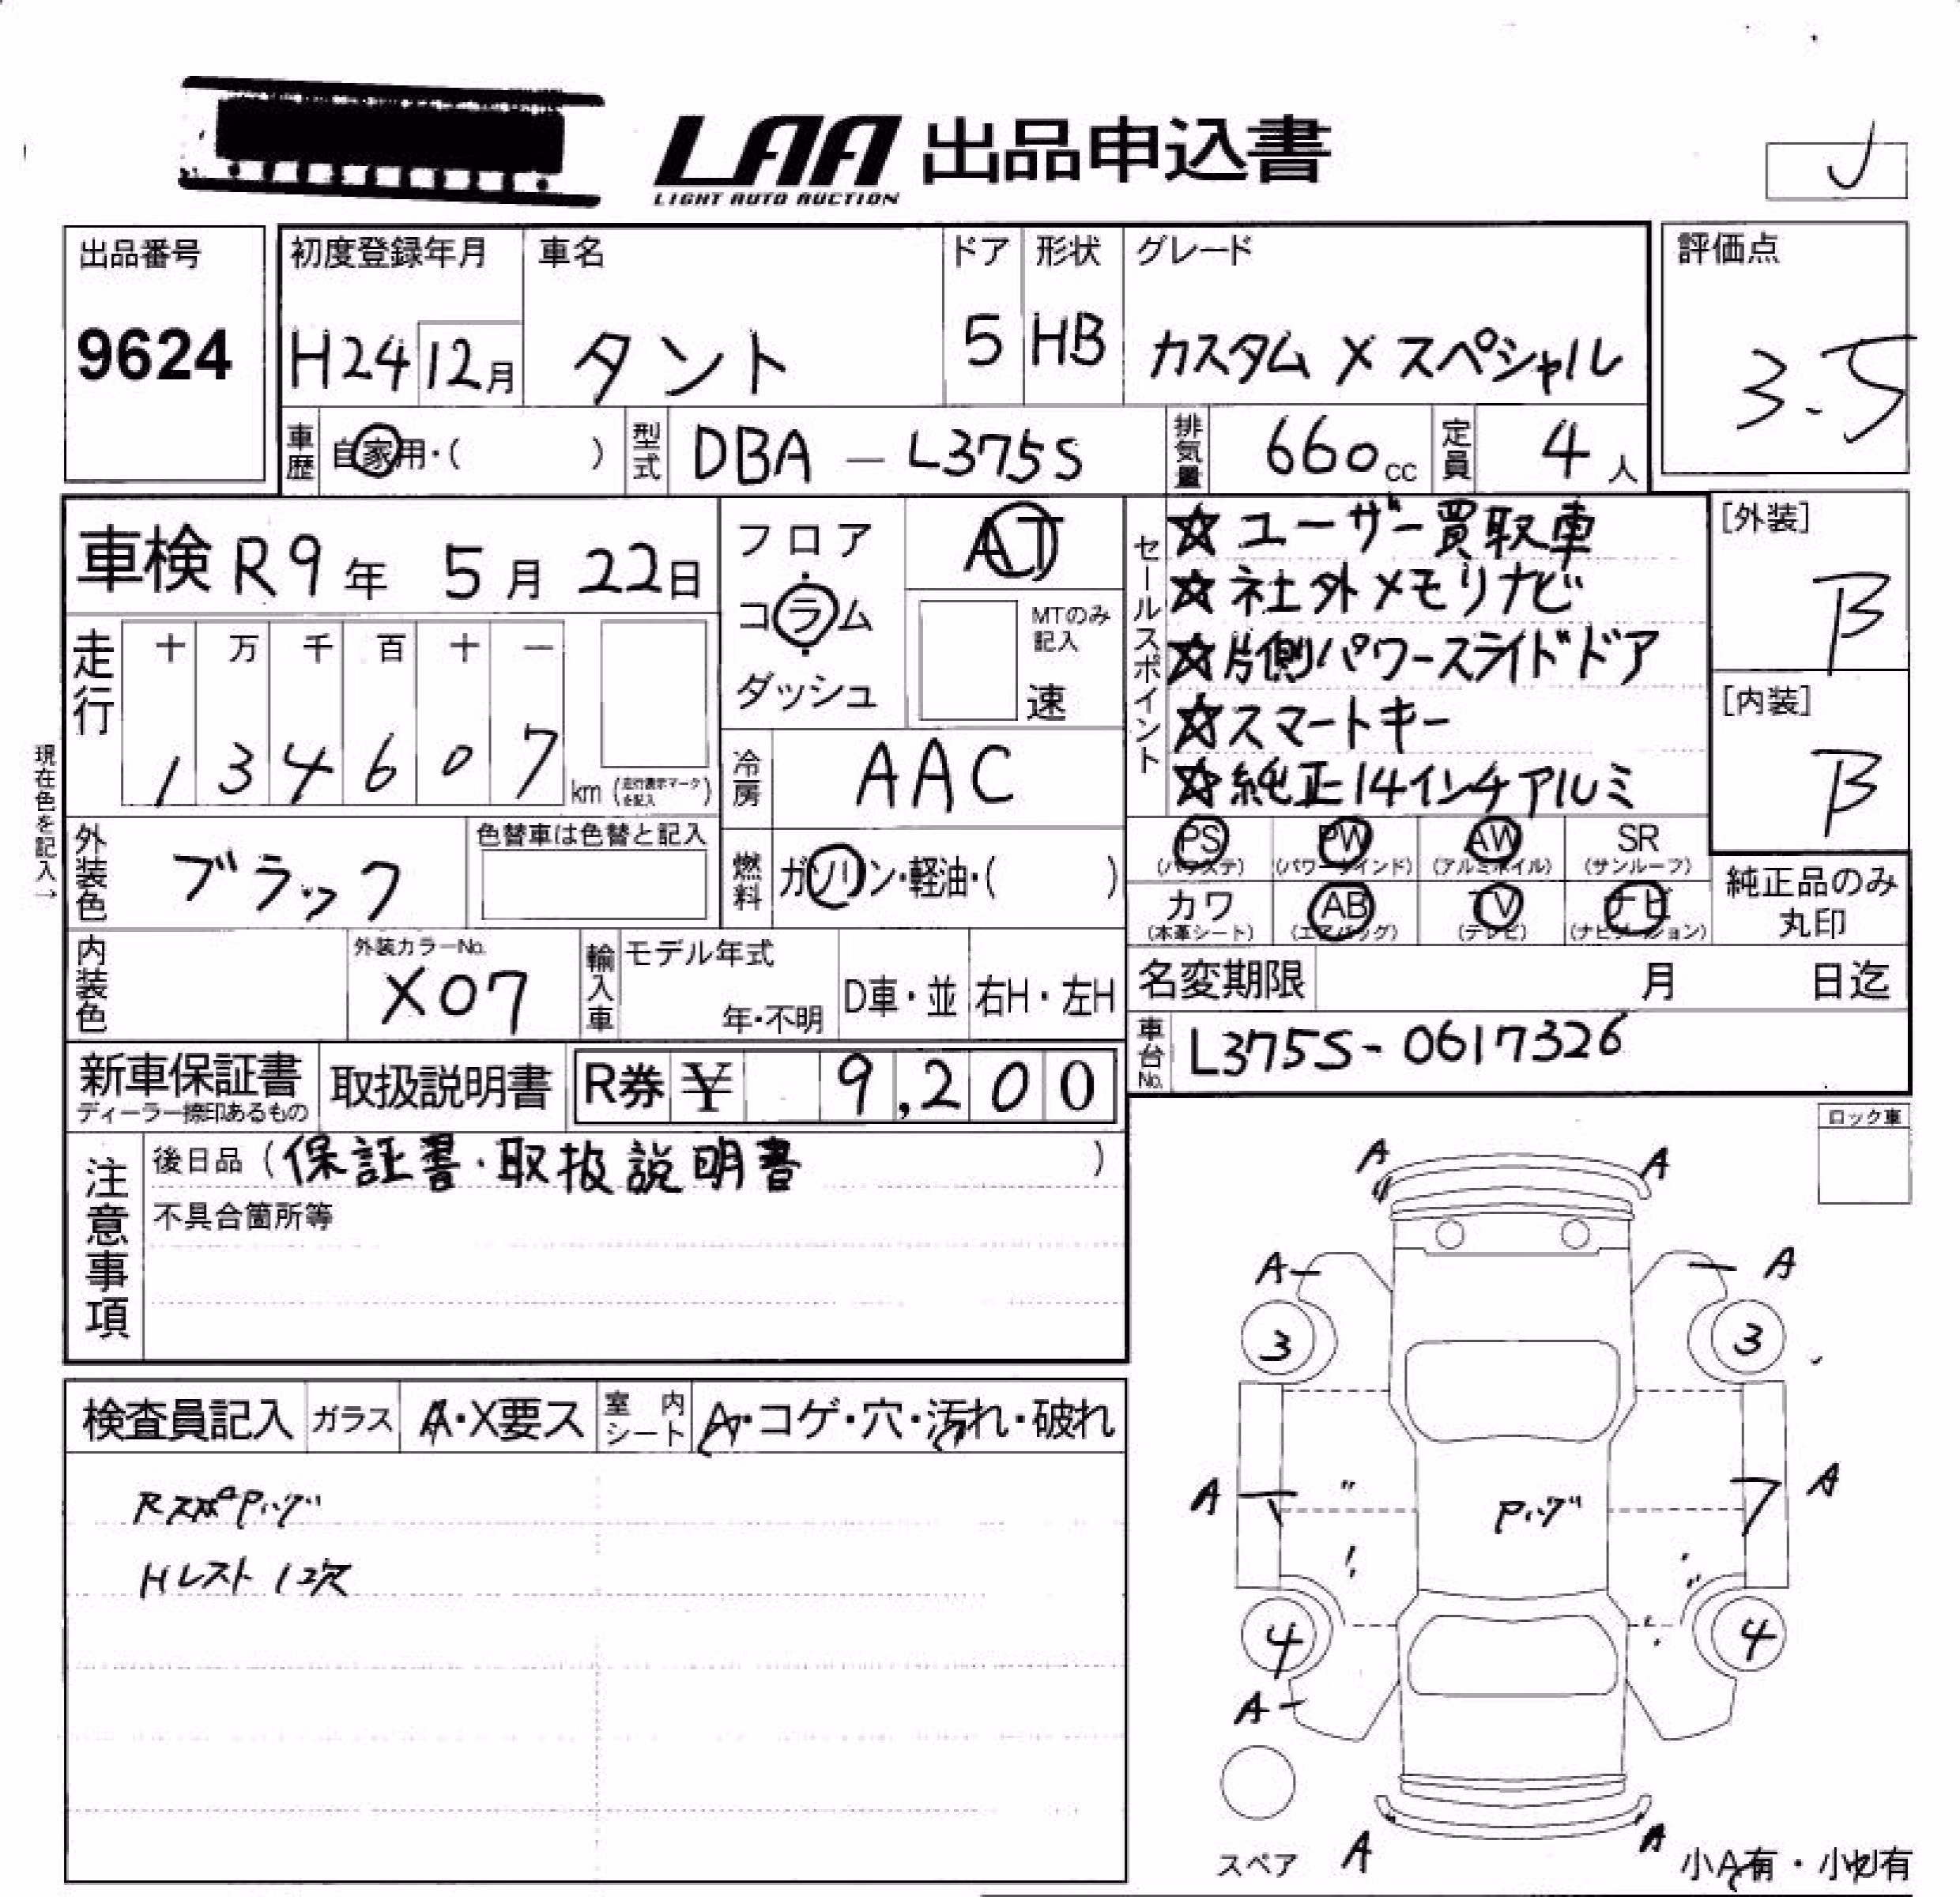 LAA 出品申込書
LIGHT AUTO AUCTION
出品番号
9624
初度登録年月
H24 12月
車名
タント
ドア
5
形状
HB
グレード
カスタム X スペシャル
評価点
3.5
車歴
自家用・( )
型式
DBA - L375S
排気量
660cc
定員
4人
車検 R9年 5月 22日
走行
十 万 千 百 十 一
1 3 4 6 0 7
km (走行表示マークを記入)
現在色を記入→
フロア
・
コラム
・
ダッシュ
AT
MTのみ記入
速
冷房
AAC
燃料
ガソリン・軽油・( )
外装色
ブラック
色替車は色替と記入
内装色
外装カラーNo.
X07
輸入車
モデル年式
年・不明
D車・並
右H・左H
セールスポイント
☆ユーザー買取車
☆社外メモリナビ
☆片側パワースライドドア
☆スマートキー
☆純正14インチアルミ
[外装]
B
[内装]
B
PS
(パワステ)
PW
(パワーウインド)
AW
(アルミホイル)
SR
(サンルーフ)
カワ
(本革シート)
AB
(エアバッグ)
TV
(テレビ)
ナビ
(ナビゲーション)
純正品のみ
丸印
名変期限 月 日迄
車台No.
L375S-0617326
新車保証書
ディーラー捺印あるもの
取扱説明書
R券 ¥ 9,200
注意事項
後日品 (保証書・取扱説明書 )
不具合箇所等
ロック車
検査員記入
ガラス
A・X要ス
室内シート
A・コゲ・穴・汚れ・破れ
Hレスト 1欠
A A
A A
3 3
A A
4 4
A
スペア
A A
小A有・小U有